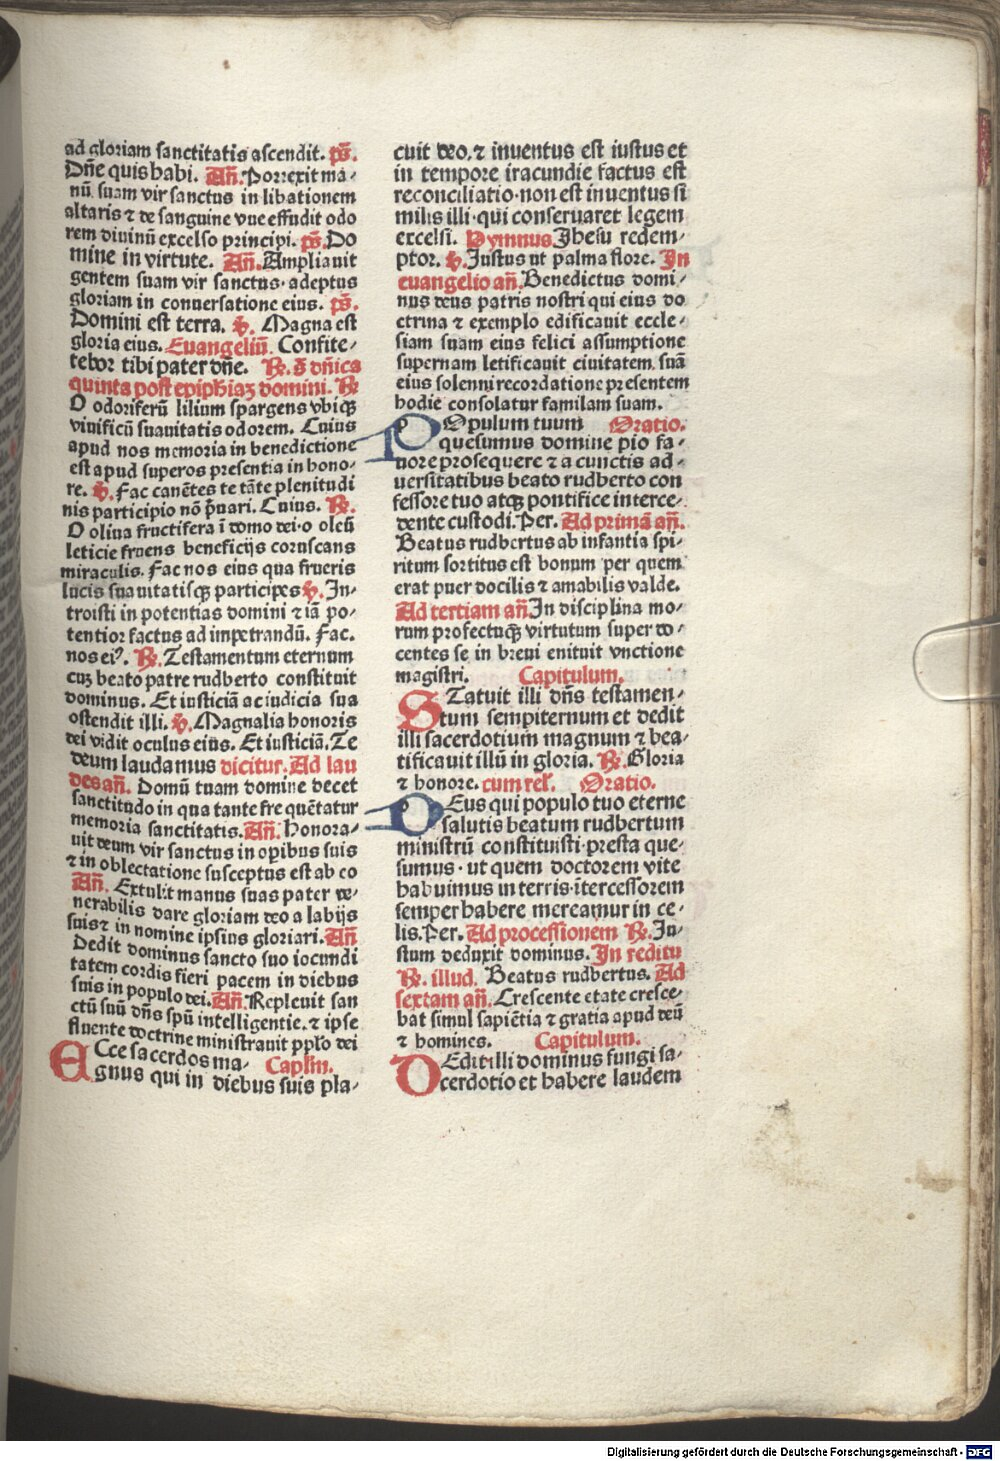 ad gloriam sanctitatis ascendit. p̄s.
Dn̄e quis habi. Añ. Porrexit ma-
nū suam vir sanctus in libationem
altaris ⁊ de sanguine vue effudit odo
rem diuinū excelso principi. p̄s. Do
mine in virtute. Añ. Ampliauit
gentem suam vir sanctus· adeptus
gloriam in conuersatione eius. p̄s.
Domini est terra. ℣. Magna est
gloria eius. Euangeliū. Confite-
tebor tibi pater dn̄e. ℞. s̄ dn̄ica
quinta post epiphiaꝫ domini. ℞
O odoriferū lilium spargens vbiqꝫ
viuificū suauitatis odorem. Cuius
apud nos memoria in benedictione
est apud superos presentia in hono-
re. ℣. Fac canētes te tāte plenitudi
nis participio nō p̄uari. Cuius. ℞.
O oliua fructifera ī domo dei·o oleū
leticie fruens beneficijs coruscans
miraculis. Fac nos eius qua frueris
lucis suauitatisqꝫ participes ℣. In-
troisti in potentias domini ⁊ iā po-
tentior factus ad impetrandū. Fac.
nos ei⁹. ℞. Testamentum eternum
cuꝫ beato patre rudberto constituit
dominus. Et iusticiā ac iudicia sua
ostendit illi. ℣. Magnalia honoris
dei vidit oculus eius. Et iusticiā. Te
deum laudamus dicitur. Ad lau
des añ. Domū tuam domine decet
sanctitudo in qua tante frequētatur
memoria sanctitatis. Añ. Honora-
uit deum vir sanctus in op̄ibus suis
⁊ in oblectatione susceptus est ab eo
Añ. Extulit manus suas pater ve-
nerabilis dare gloriam deo a labijs
suis ⁊ in nomine ipsius gloriari. Añ
Dedit dominus sancto suo iocundi
tatem cordis fieri pacem in diebus
suis in populo dei. Añ. Repleuit san
ctū suū dn̄s spū intelligentie. ⁊ ipse
fluente doctrine ministrauit pplo dei
ECce sacerdos ma- Caplm̄.
gnus qui in diebus suis pla-
cuit deo. ⁊ inuentus est iustus et
in tempore iracundie factus est
reconciliatio·non est inuentus si
milis illi·qui conseruaret legem
excelsi. Hymnus Jhesu redem-
ptor. ℣. Justus ut palma flore. In
euangelio añ. Benedictus domi-
nus deus patris nostri qui eius do
ctrina ⁊ exemplo edificauit eccle-
siam suam eius felici assumptione
supernam letificauit ciuitatem. suā
eius solenni recordatione presentem
hodie consolatur familam suam.
POpulum tuum Oratio.
quesumus domine pio fa-
uore prosequere ⁊ a cunctis ad-
uersitatibus beato rudberto con
fessore tuo atqꝫ pontifice interce-
dente custodi. Per. Ad primā añ.
Beatus rudbertus ab infantia spi-
ritum sortitus est bonum per quem
erat puer docilis ⁊ amabilis valde.
Ad tertiam añ In disciplina mo-
rum profectuqꝫ virtutum super do-
centes se in breui enituit vnctione
magistri. Capitulum.
STatuit illi dn̄s testamen-
tum sempiternum et dedit
illi sacerdotium magnum ⁊ bea-
tificauit illū in gloria. ℞. Gloria
⁊ honore. cum rel̄. Oratio.
DEus qui populo tuo eterne
salutis beatum rudbertum
ministrū constituisti·presta que-
sumus · ut quem doctorem vite
habuimus in terris·ītercessorem
semper habere mereamur in ce-
lis. Per. Ad processionem ℞. Ju-
stum deduxit dominus. In reditu
℞. illud. Beatus rudbertus. Ad
sextam añ. Crescente etate cresce-
bat simul sapiētia ⁊ gratia apud deū
⁊ homines. Capitulum.
DEdit illi dominus fungi sa-
cerdotio et habere laudem
Digitalisierung gefördert durch die Deutsche Forschungsgemeinschaft - DFG